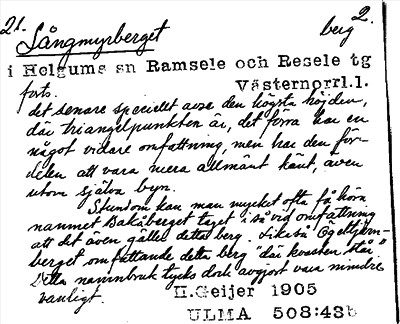 21. Långmyrberget berg 2.
i Helgums sn Ramsele och Resele tg
forts. Västernorrl.l.
det senare speciellt avse den högsta höjden,
där triangelpunkten är, det förra har en
något vidare omfattning, men har den för-
delen att vara mera allmänt känt, även
utom själva byn.
Stundom kan man mycket ofta få höra
namnet Bakåberget taget i så vid omfattning
att det även gäller detta berg. Likaså
berget omfattande detta berg "där kvasten står"
Detta namnbruk tycks dock avgjort vara mindre
vanligt.
H.Geijer 1905
ULMA 508:43b